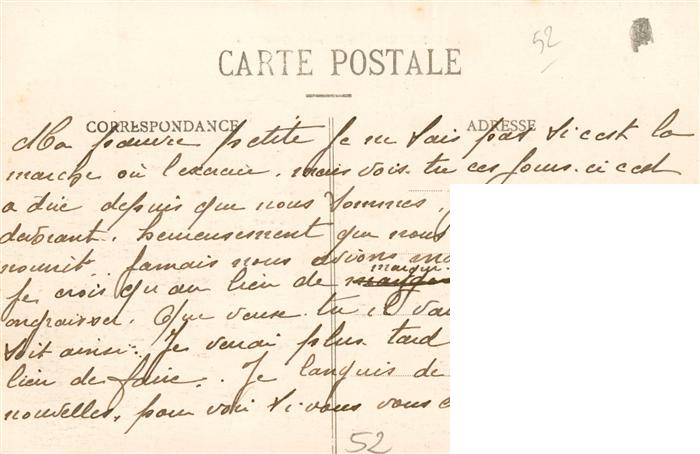 52
CARTE POSTALE
CORRESPONDANCE
ADRESSE
Ma pauvre petite Je ne sais pas si c'est la
marche où l'exercice. mais vois-tu ces jours-ci c'est
a dire depuis que nous sommes,
dabrant. heureusement que nous
nourrit. Jamais nous avions
Je crois qu'au lieu de maigrir
engraisser. Que veux-tu il
soit ainsi. Je verrai plus tard
lieu de faire. Je languis de
nouvelles, pour voir si vous vous
52